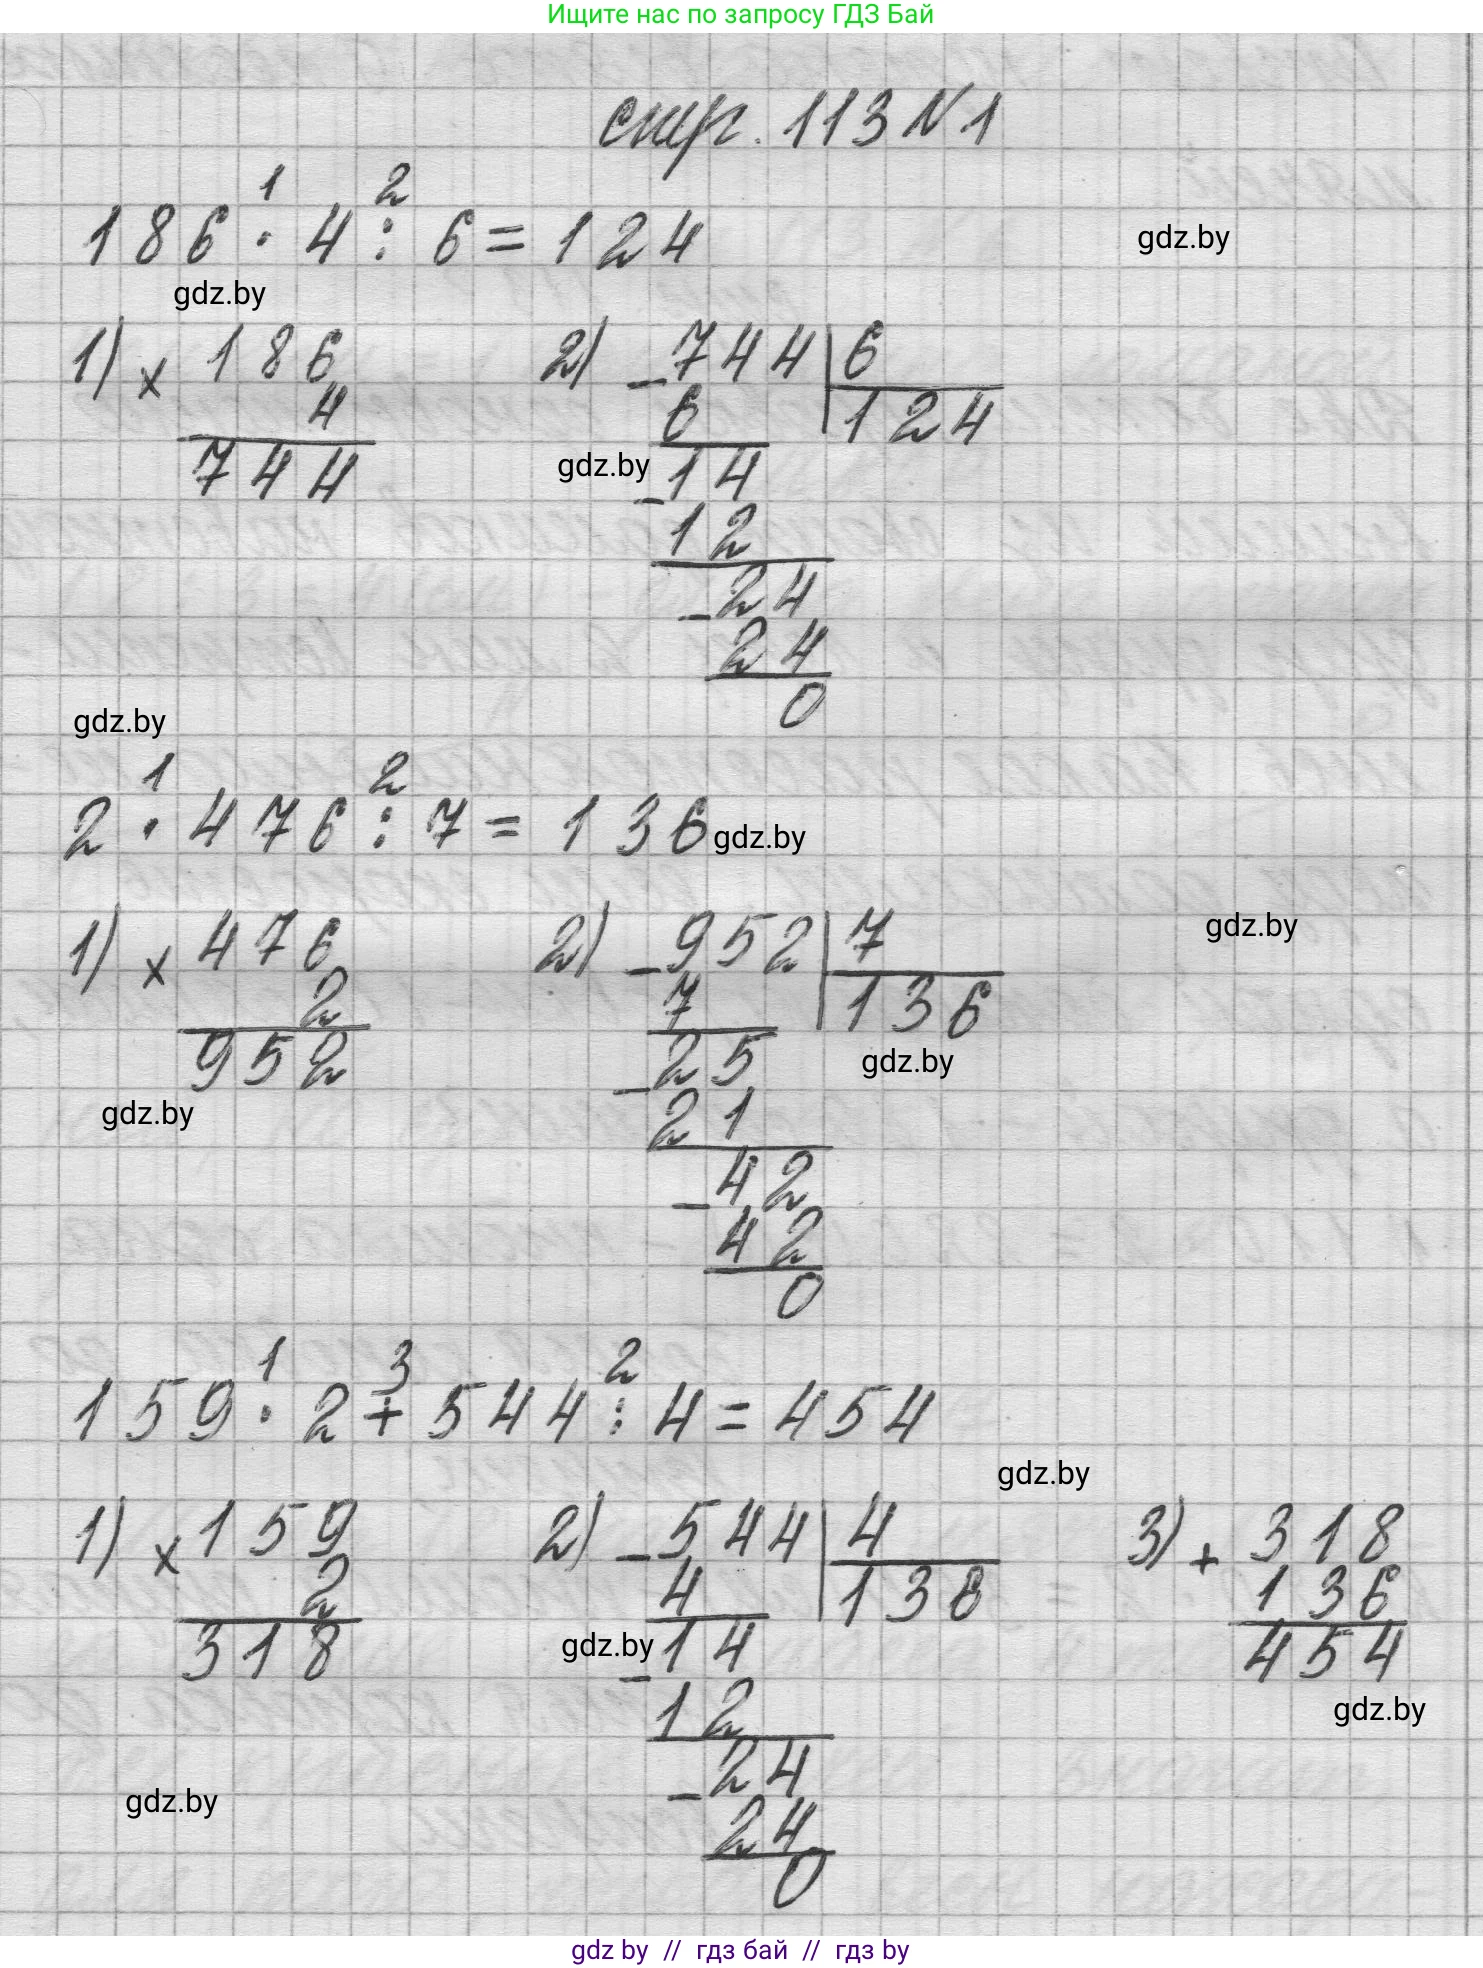 Ищите нас по запросу ГДЗ Бай
стр. 113 N 1
1 2
186 · 4 : 6 = 124
gdz.by
gdz.by
1) × 186 2) - 744 | 6
4 6 124
744 gdz.by - 14
12
- 24
24
0
gdz.by
1 2
2 · 476 : 7 = 136
gdz.by
gdz.by
1) × 476 2) - 952 | 7
2 7 136
952 - 25 gdz.by
gdz.by 21
- 42
42
0
1 3 2
159 · 2 + 544 : 4 = 454
gdz.by
1) × 159 2) - 544 | 4 3) + 318
2 4 136 136
318 gdz.by - 14 454
12 gdz.by
- 24
gdz.by 24
0
gdz by // гдз бай // гдз by